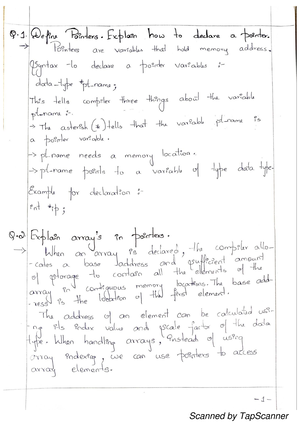 Q.1 Define Pointers. Explain how to declare a pointer.
→ Pointers are variables that hold memory address.
Syntax to declare a pointer variable :-
data-type *pt-name ;
This tells compiler three things about the variable
pt-name :-
→ The asterisk (*) tells that the variable pt-name is
a pointer variable.
→ pt-name needs a memory location.
→ pt-name points to a variable of type data type.
Example for declaration :-
int *ip ;
Q.2 Explain array's in pointers.
→ When an array is declared, the compiler allo-
-cates a base address and sufficient amount
of storage to contain all the elements of the
array in contiguous memory locations. The base add-
-ress is the location of the first element.
The address of an element can be calculated usi-
ng its index value and scale factor of the data
type. When handling arrays, instead of using
array indexing, we can use pointers to access
array elements.
-1-
Scanned by TapScanner